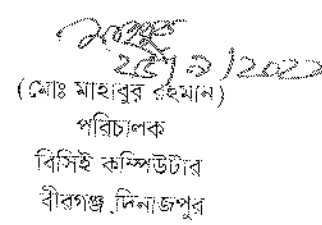 (মোঃ মাহাবুর রহমান)
পরিচালক
বিসিই কম্পিউটার
বীরগঞ্জ,দিনাজপুর